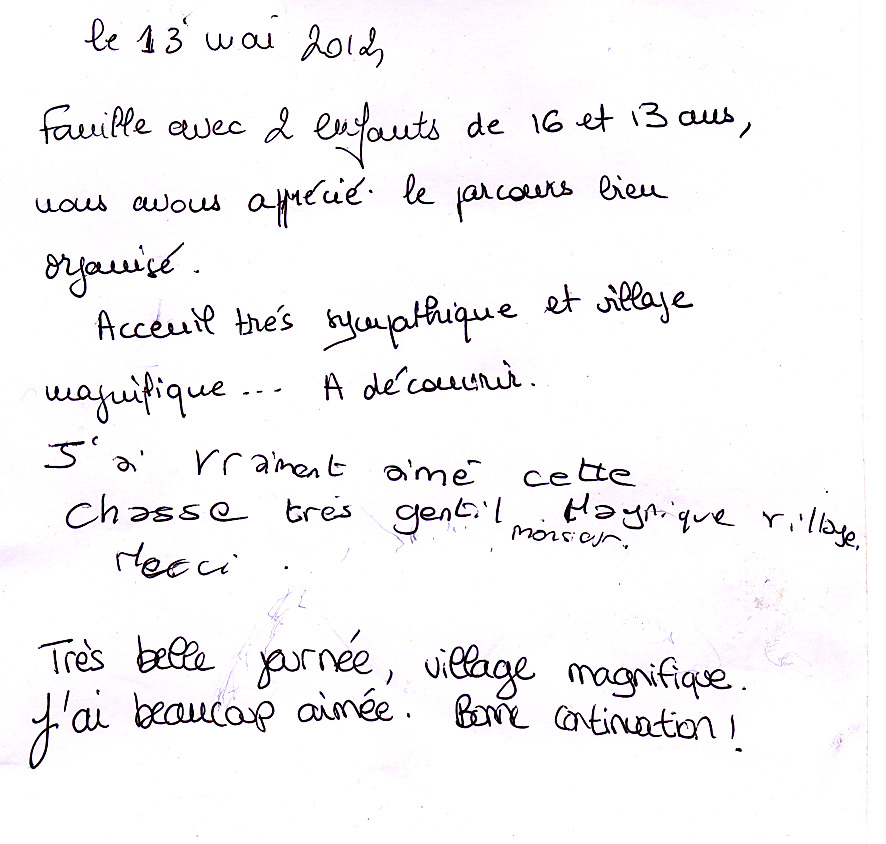 le 13 mai 2012
Famille avec 2 enfants de 16 et 13 ans,
nous avons apprécié le parcours bien
organisé.
Acceuil trés sympathique et village
magnifique... A découvrir.
J'ai vraiment aimé cette
chasse très gentil monsieur. Magnique village.
Merci.
Très belle journée, village magnifique.
J'ai beaucoup aimée. Bonne continuation!